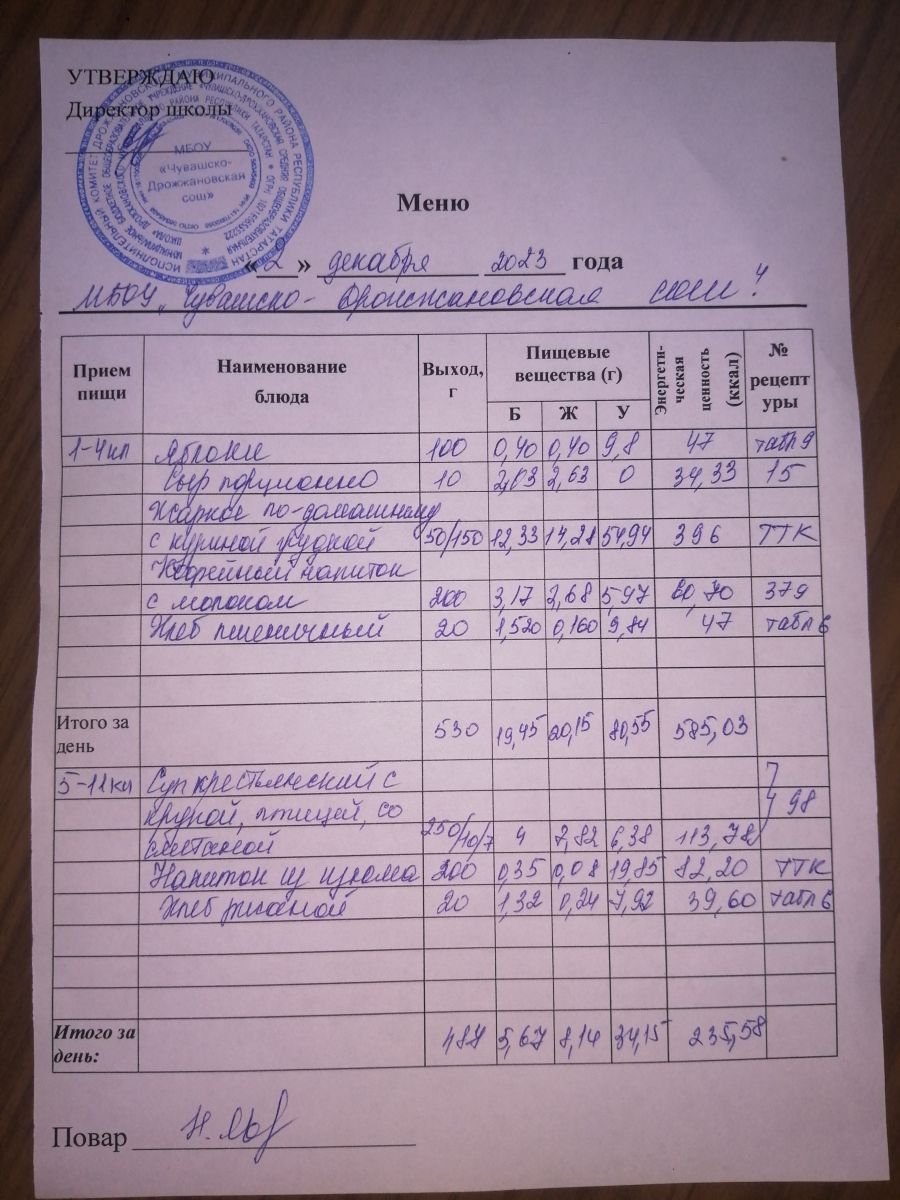 УТВЕРЖДАЮ
Директор школы
МБОУ
«Чувашско-
Дрожжановская
сош»
Меню
« 2 » декабря 2023 года
МБОУ „Чувашско-Дрожжановская сош"
Прием пищи Наименование блюда Выход, г Пищевые вещества (г) Б Ж У Энергетическая ценность (ккал) № рецептуры
1-4кл Яблоки 100 0,40 0,40 9,8 47 табл 9
Сыр порционно 10 2,03 2,63 0 34,33 15
Жаркое по-домашнему
с куриной грудкой 50/150 12,33 14,28 54,94 396 ТТК
Кофейный напиток
с молоком 200 3,17 2,68 5,97 60,70 379
Хлеб пшеничный 20 1,520 0,160 9,84 47 табл 6
Итого за день 530 19,45 20,15 80,55 585,03
5-11кл Суп крестьянский с
крупой, птицей, со 98
сметаной 250/10/7 4 7,82 6,38 113,78
Напиток из изюма 200 0,35 0,08 19,85 82,20 ТТК
Хлеб ржаной 20 1,32 0,24 7,92 39,60 табл 6
Итого за день: 487 5,67 8,14 34,15 235,58
Повар